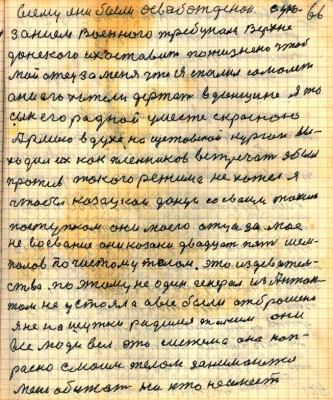 сему они были освобождены. ска- 66
занием Военного трибунала Верхне
донского их оставит пожизнено чтоб
мой отец за меня что я спалил самолет
они его хотели держат в
сын его родной уместе с красною
Армию в духе на щетовской курган вы-
ходил их как пленников встречат я был
против такого режима не хотел я
чтобы козацкой донци со своим таким
поступком они моего отца за мое
не козаки двадцат пят шем-
полов по чистому телом. это издеватель-
ства по этому не один генерал из Антан-
том не устояла а все были отброшены
я не на шутки таким они
все люди вел это система она нап-
расно с моим телом занимаится
меня обижат ни кто не смеит